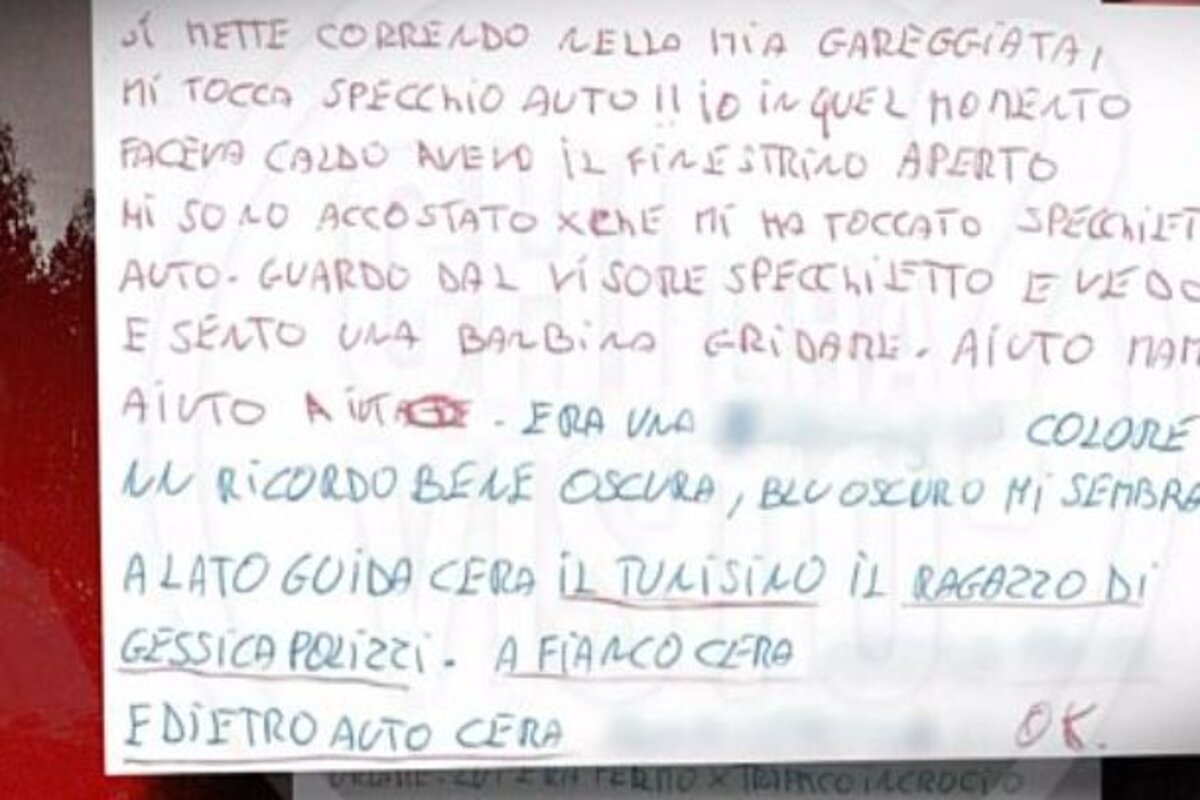 SI METTE CORRENDO NELLA MIA GAREGGIATA,
MI TOCCA SPECCHIO AUTO !! IO IN QUEL MOMENTO
FACEVA CALDO AVEVO IL FINESTRINO APERTO
MI SONO ACCOSTATO XCHE MI HA TOCCATO SPECCHIET
AUTO. GUARDO DAL VISORE SPECCHIETTO E VEDO
E SENTO UNA BAMBINA GRIDARE. AIUTO MAM
AIUTO AIUTO. ERA UNA COLORE
NN RICORDO BENE OSCURA, BLU OSCURO MI SEMBRA
A LATO GUIDA CERA IL TUNISINO IL RAGAZZO DI
GESSICA POLIZZI. A FIANCO CERA
E DIETRO AUTO CERA
OK.